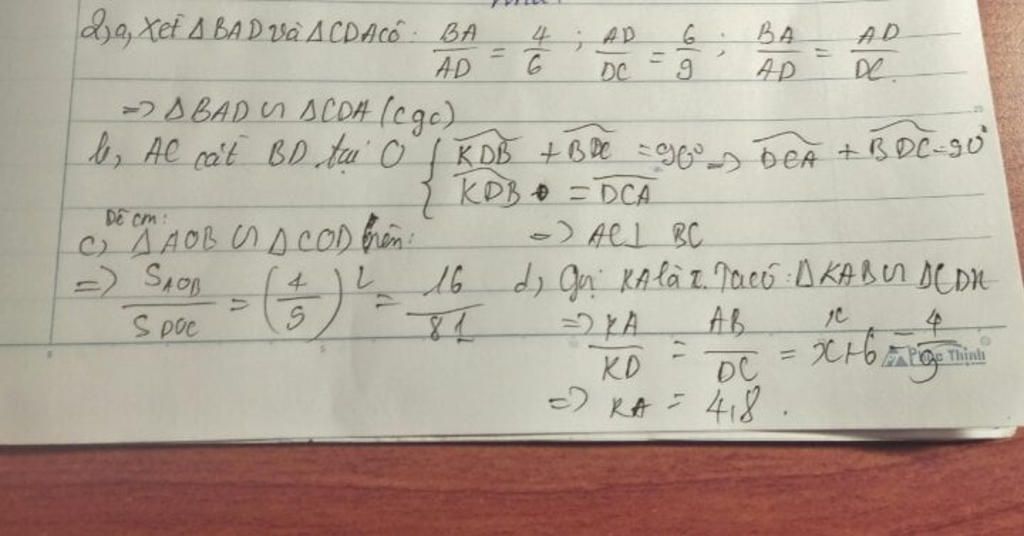 2, a, Xét ΔBAD và ΔCDA có: BA/AD = 4/6 ; AD/DC = 6/9 ; BA/AD = AD/DC.
=> ΔBAD ∽ ΔCDA (cgc)
b, AC cắt BD tại O { KDB + BDC = 90° => DCA + BDC = 90°
{ KDB = DCA
=> AC⊥ BC
Dễ cm:
c, ΔAOB ∽ ΔCOD nên:
=> S AOB / S DOC = (4/9)² = 16/81
d, Gọi KA là x. Ta có: ΔKAB ∽ ΔCDK
=> KA/KD = AB/DC = x/x+6 = 4/9
=> KA = 4,8.
Phúc Thịnh